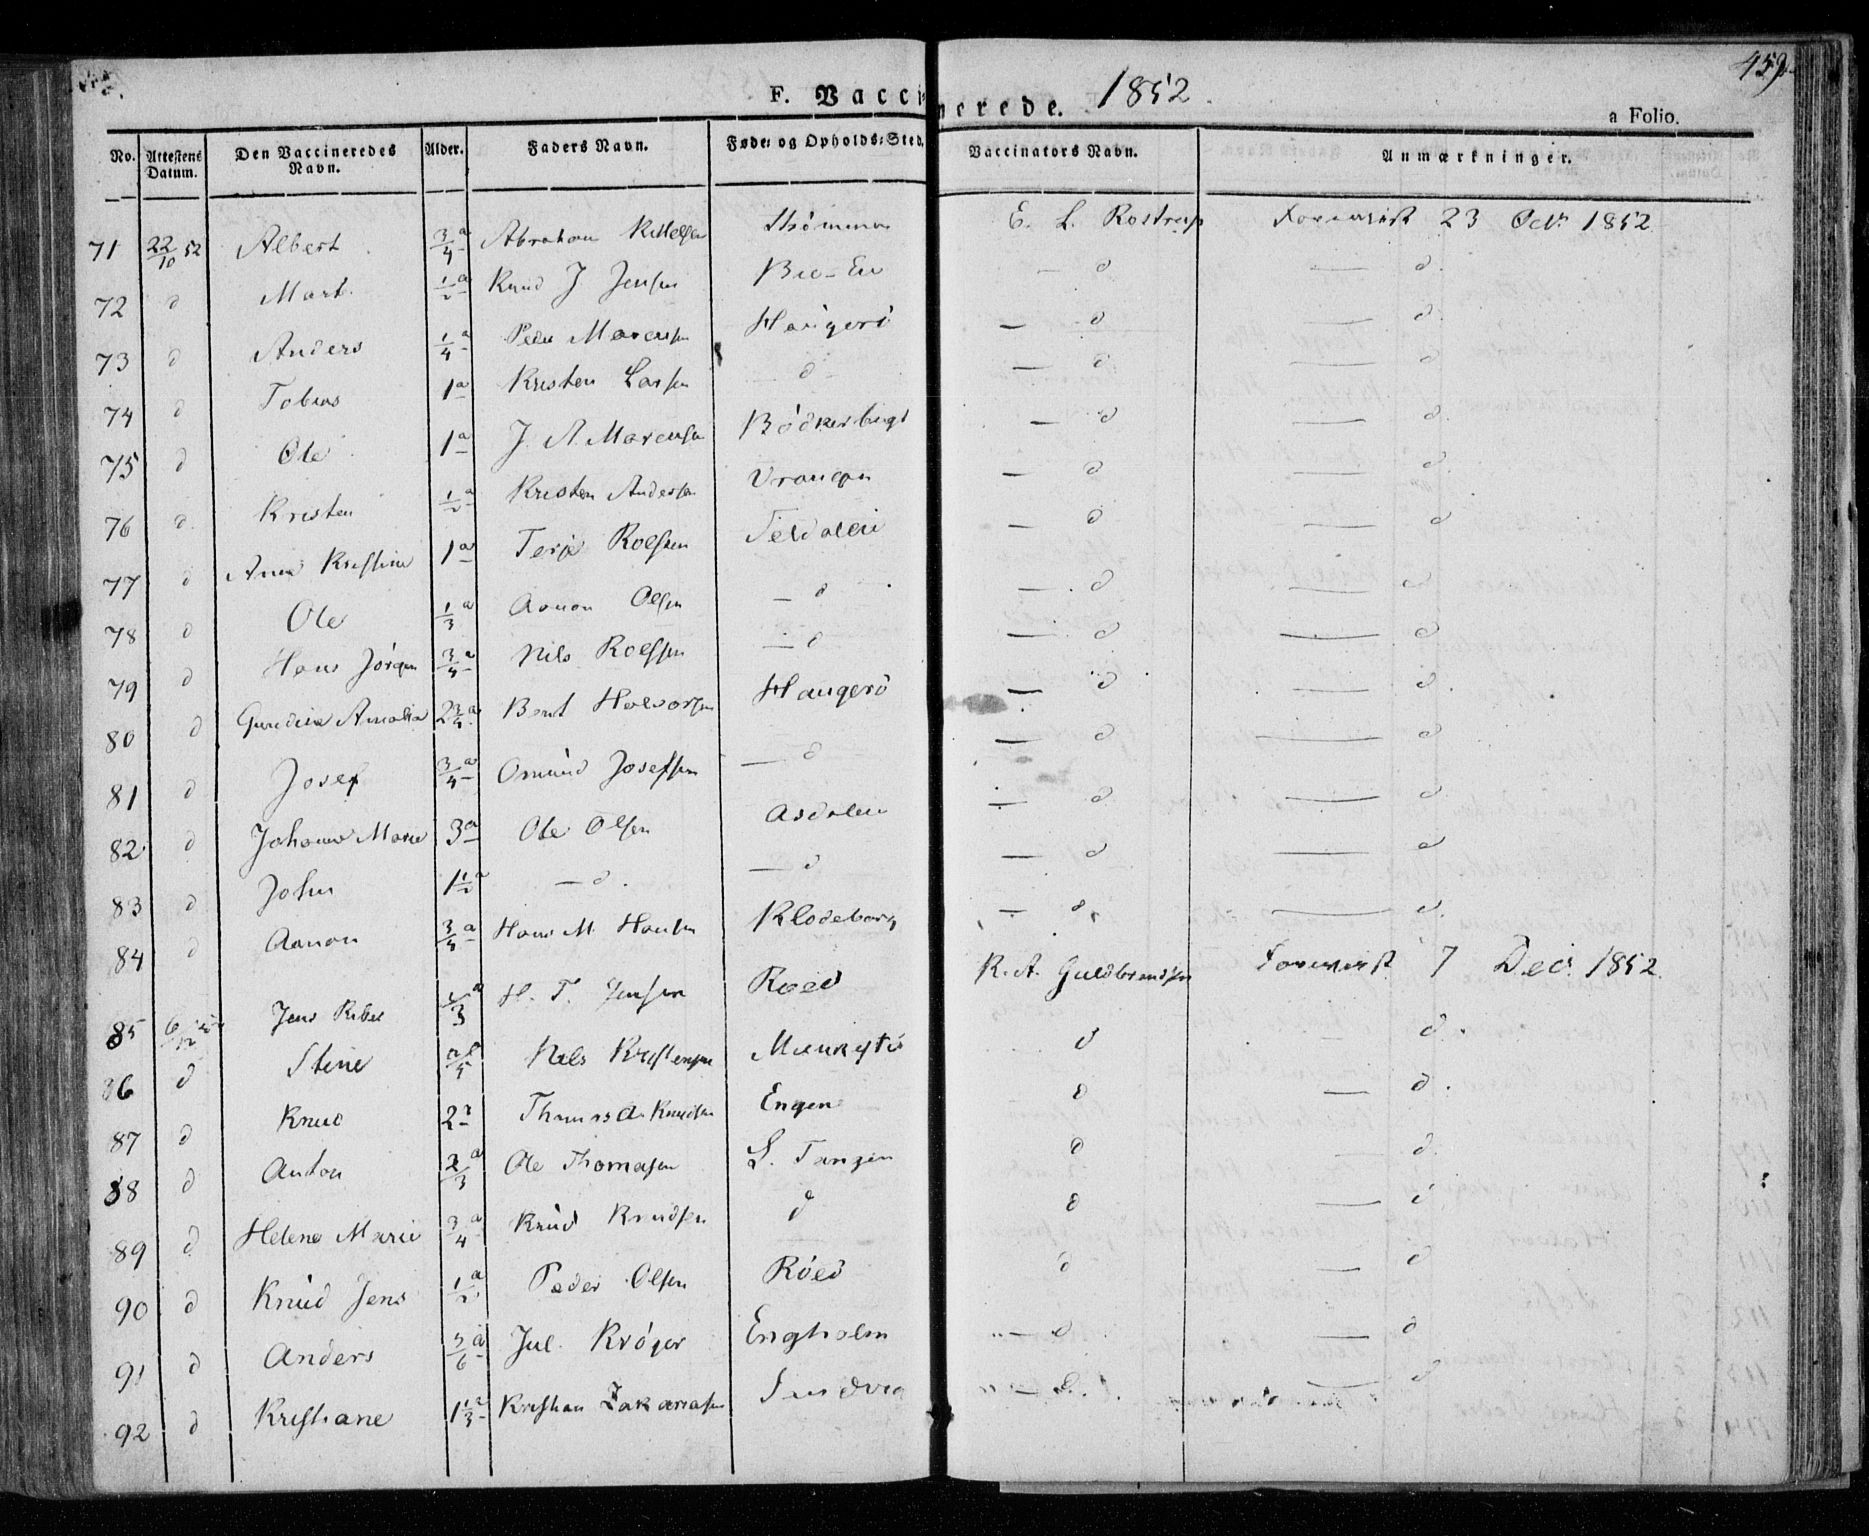 F. Vaccinerede. 1852.
459.
a Folio.
No. Attestens Datum. Den Vaccineredes Navn. Alder. Faders Navn. Føde- og Opholds-Sted. Vaccinators Navn. Anmærkninger.
71 22/10 52 Albert 3/4 a Abraham Kittelsen E. L. Rostrup Forevist 23 Octr 1852.
72 d Mart. 1/2 a Knud J Jensen — d — d.
73 d Anders 1/4 a Peder Marcusen Haugerö — d — d.
74 d Tobias 1 a Kristen Larsen — d — — d — d
75 d Ole 1 a J. A. Marcusen Bödkerbugt — d — d.
76 d. Kristen 1/2 a Kristen Andersen Vrangen — d — d.
77 d Ane Kristine 1 a Terje Roelsen Teldalen — d — d
78 d Ole 1/3 a Aanon Olsen — d — d — d
79 d Hans Jörgen 3/4 a Nils Roelssen — d — d — d
80 d Gundine Amalia 2 3/4 a Bent Halvorsen Haugerö — d — d.
81 d Josef 3/4 a Omund Josefsen — d — d — d
82 d Johanne Marie 3 a Ole Olsen Asdalen — d — d
83 d John 1 1/2 a — d. — d — d — d
84 d Aanon 3/4 a Hans M. Hansen Klodeborg — d — d.
85 6/12 52 Jens Ribe 1/3 a H. T. Jensen Roed K. A. Guldbrandsen Forevist 7 Decr. 1852.
86 d Stine Nils Kristensen d — d.
87 d Knud 2 a Thomas A. Knudsen Engene d — d.
88 d Anton 2/3 a Ole Thomasen L. Tangen d — d.
89 d Helene Marie 3/4 a Knud Knudsen d d — d
90 d Knud Jens 1/2 a Peder Olsen Röed d — d
91 d Anders 5/6 a Jul. Kröger Engholm — d — d
92 d Kristiane 1 1/3 a Kristian Zakariasen Sandvig — d. — d